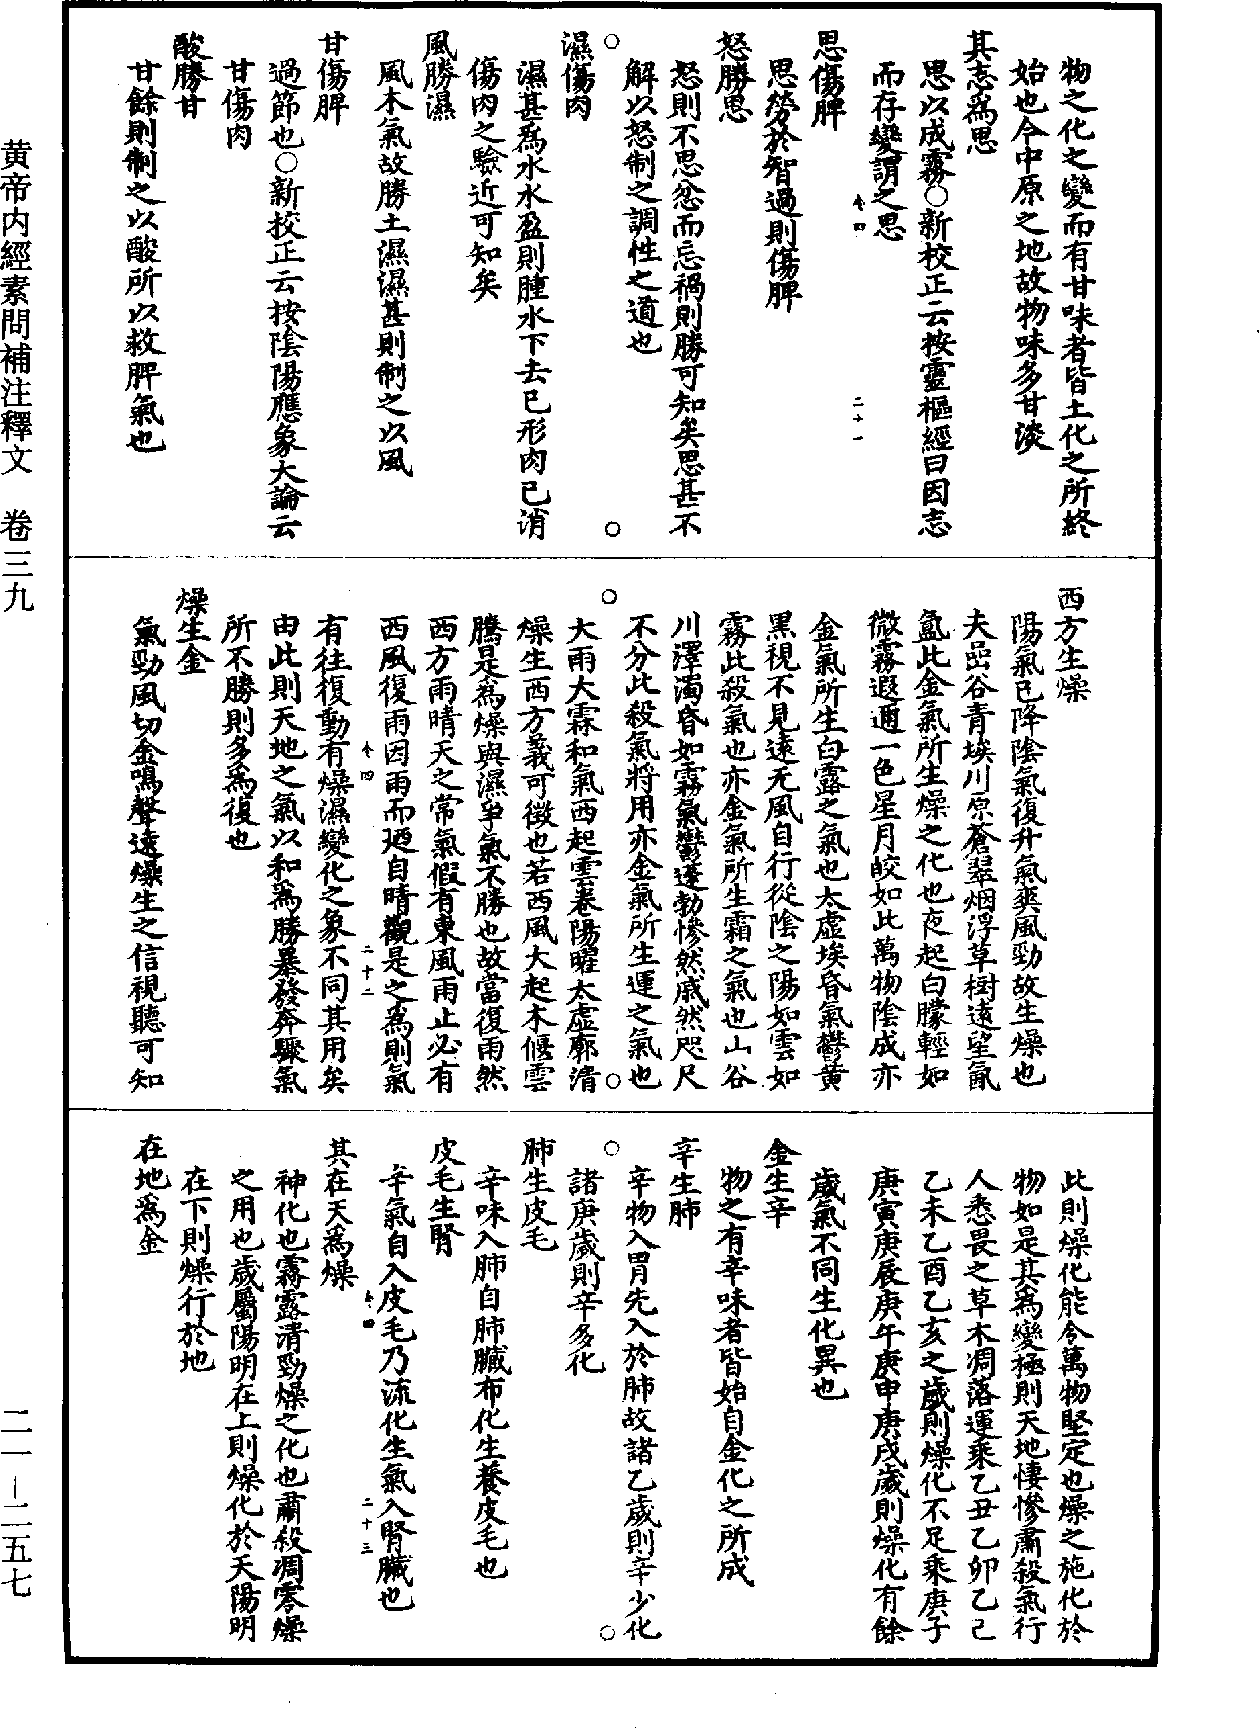 物之化之變而有甘味者皆土化之所終
始也今中原之地故物味多甘淡
其志爲思
思以成務○新校正云按靈樞經曰因志
而存變謂之思
思傷脾
思勞於智過則傷脾
怒勝思
怒則不思忿而忘禍則勝可知矣思甚不
解以怒制之調性之道也
濕傷肉
濕甚爲水水盈則腫水下去已形肉已消
傷肉之驗近可知矣
風勝濕
風木氣故勝土濕濕甚則制之以風
甘傷脾
過節也○新校正云按陰陽應象大論云
甘傷肉
酸勝甘
甘餘則制之以酸所以救脾氣也
西方生燥
陽氣已降陰氣復升氣爽風勁故生燥也
夫嵒谷青埃川原蒼翠烟浮草樹遠望氤
氳此金氣所生燥之化也夜起白朦輕如
微霧遐邇一色星月皎如此萬物陰成亦
金氣所生白露之氣也太虛埃昏氣鬱黄
黑視不見遠无風自行從陰之陽如雲如
霧此殺氣也亦金氣所生霜之氣也山谷
川澤濁昏如霧氣鬱蓬勃慘然戚然咫尺
不分此殺氣將用亦金氣所生運之氣也
大雨大霖和氣西起雲卷陽曜太虛廓清
燥生西方義可徵也若西風大起木偃雲
騰是爲燥與濕爭氣不勝也故當復雨然
西方雨晴天之常氣假有東風雨止必有
西風復雨因雨而廼自晴觀是之爲則氣
有往復動有燥濕變化之象不同其用矣
由此則天地之氣以和爲勝暴發奔驟氣
所不勝則多爲復也
燥生金
氣勁風切金鳴聲遠燥生之信視聽可知
此則燥化能令萬物堅定也燥之施化於
物如是其爲變極則天地悽慘肅殺氣行
人悉畏之草木凋落運乘乙丑乙卯乙己
乙未乙酉乙亥之歲則燥化不足乘庚子
庚寅庚辰庚午庚申庚戌歲則燥化有餘
歲氣不同生化異也
金生辛
物之有辛味者皆始自金化之所成
辛生肺
辛物入胃先入於肺故諸乙歲則辛少化
諸庚歲則辛多化
肺生皮毛
辛味入肺自肺臟布化生養皮毛也
皮毛生腎
辛氣自入皮毛乃流化生氣入腎臟也
其在天爲燥
神化也霧露清勁燥之化也肅殺凋零燥
之用也歲屬陽明在上則燥化於天陽明
在下則燥行於地
在地爲金
黄帝内經素問補注釋文　卷三九
二一－二五七